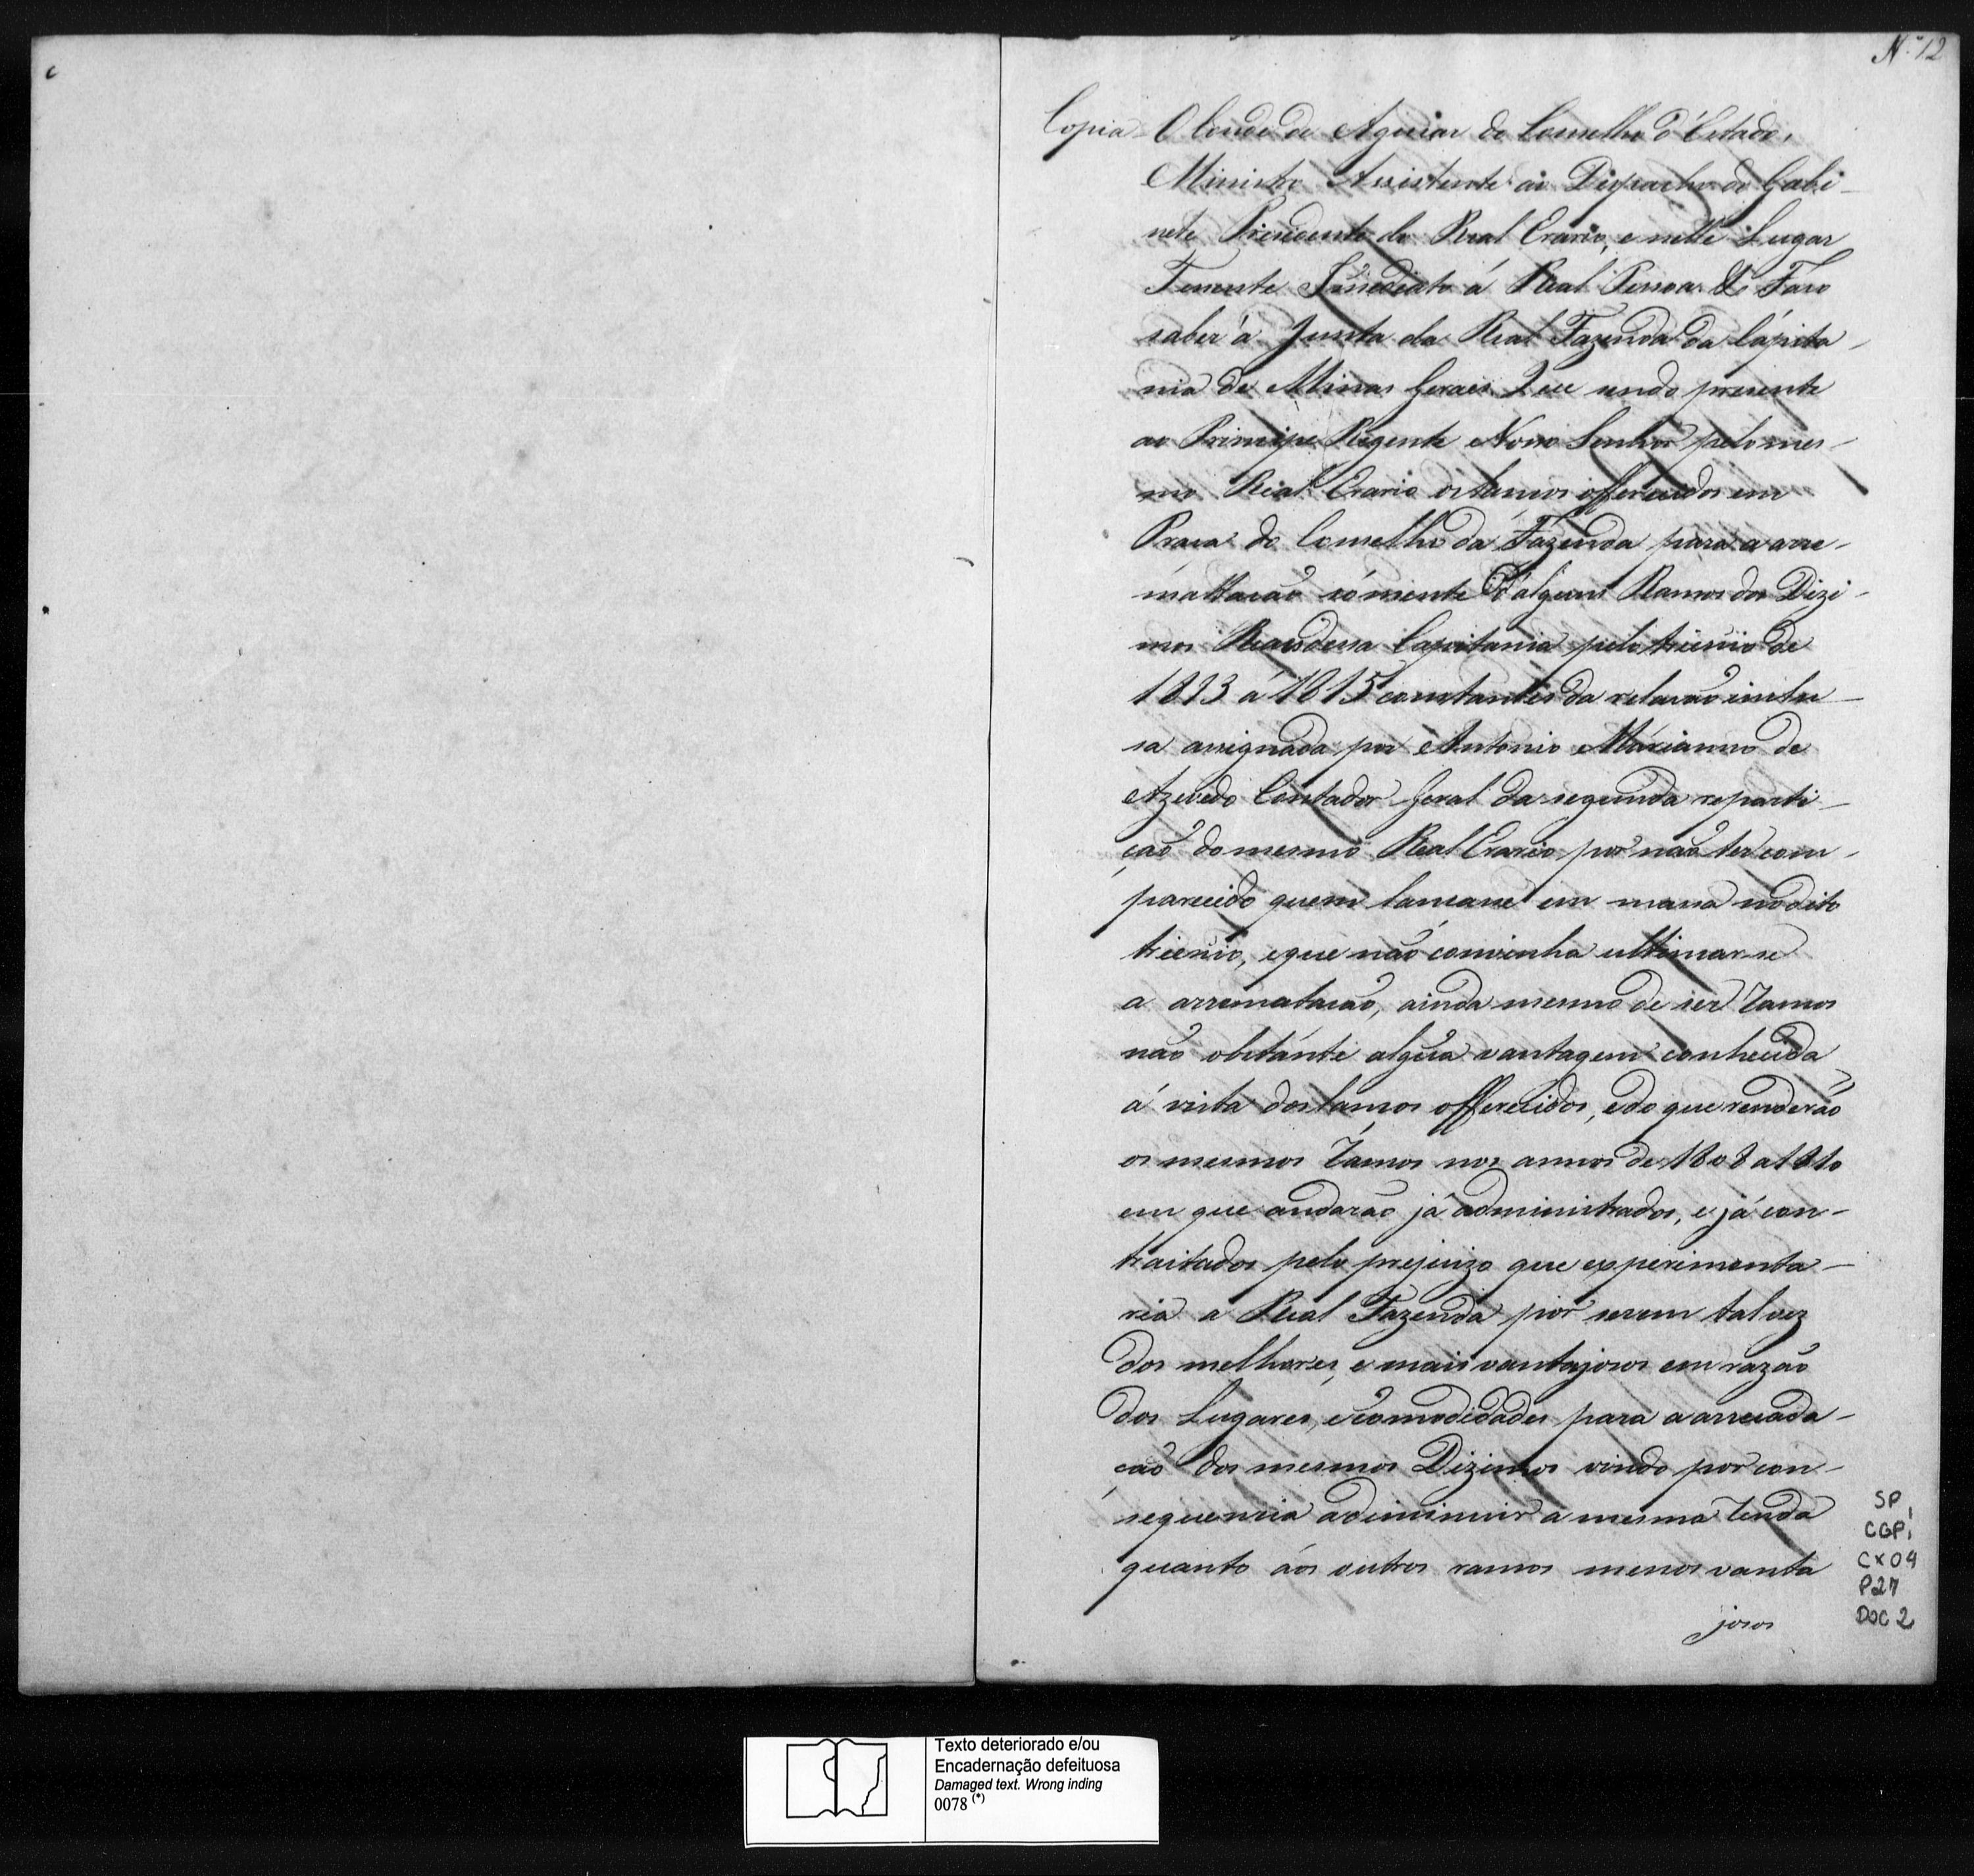 N.º 12
Copia O Conde de Aguiar do Conselho d'Estado,
Ministro Assistente ao Despacho do Gabi-
nete Presidente do Real Erario, e nelle Lugar
Tenente Immediato á Real Pessoa &.ª Faço
saber á Junta da Real Fazenda da Capita-
nia de Minas Geraes Que sendo presente
ao Principe Regente Nosso Senhor pelo mes-
mo Real Erario os lanços offerecidos em
Praça do Conselho da Fazenda para a arre-
mattacão sómente d'alguns Ramos dos Dizi-
mos Reaes dessa Capitania pelo trienio de
1813 a 1815 constantes da relacão inclu-
sa assignada por Antonio Marianno de
Azevedo Contador Geral da segunda reparti-
ção do mesmo Real Erario, por não ter com-
parecido quem lançasse em massa no dito
trienio, e que não convinha ultimar-se
a arrematacão, ainda mesmo de ses Ramos
não obstante algũa vantagem conhecida
á vista dos lanços offerecidos, e do que renderão
os mesmos Ramos nos annos de 1808 a 1810
em que andarão já administrados, e já con-
traitados pelo prejuizo que experimenta-
ria a Real Fazenda por serem talvez
dos melhores, e mais vantajosos em razão
dos Lugares, e comodidades para a arrecada-
ção dos mesmos Dizimos vindo por con-
sequencia a diminuir a mesma Renda
quanto áos outros ramos menos vanta
josos
SP
CGP1
CX04
P27
DOC 2
Texto deteriorado e/ou
Encadernação defeituosa
Damaged text. Wrong inding
0078 (*)